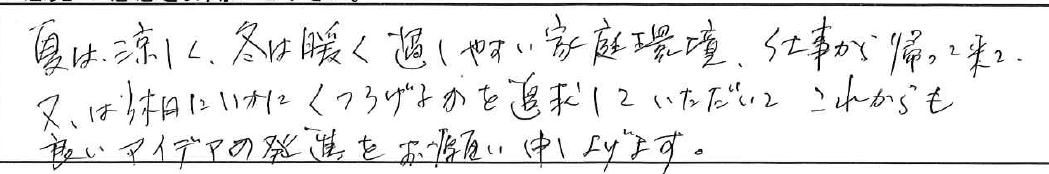 夏は涼しく、冬は暖く過しやすい家庭環境、仕事から帰って来て、
又、は休日にいかにくつろげるかを追求していただいて これからも
良いアイデアの発進をお願い申し上げます。